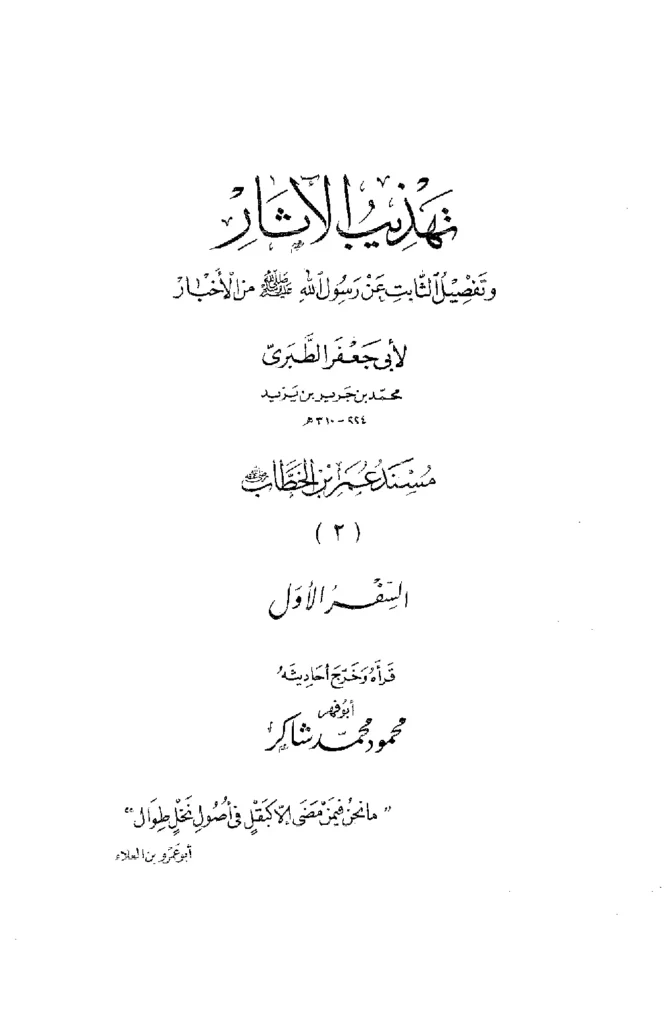 تهذيب الآثار
وتفصيل الثابت عن رسول الله ﷺ من الأخبار
لأبى جعفر الطبرىّ
محمّد بن جرير بن يزيد
٢٢٤ - ٣١٠ هـ
مُسْنَدُ عُمَرَ بْنِ الخَطَّابِ رضي الله عنه
( ٢ )
السِّفْرُ الأوّل
قَرَأهُ وَخَرَّجَ أحَاديثَهُ
أبو فهر
محمود محمّد شاكر
"ما نحنُ فيمَنْ مَضَى إلاّ كبَقْلٍ فى أصُولِ نَخْلٍ طِوَال"
أبو عَمْرو بن العلاء